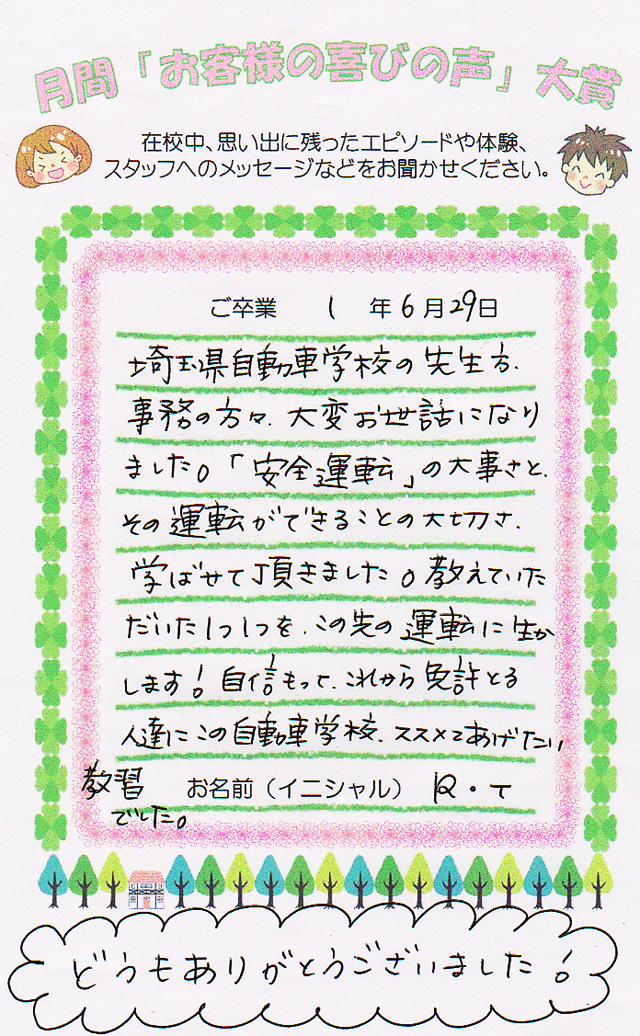 月間「お客様の喜びの声」大賞
在校中、思い出に残ったエピソードや体験、
スタッフへのメッセージなどをお聞かせください。
ご卒業 1 年 6 月 29 日
埼玉県自動車学校の先生方、
事務の方々、大変お世話になり
ました。「安全運転」の大事さと、
その運転ができることの大切さ、
学ばせて頂きました。教えていた
だいた1つ1つを、この先の運転に生か
します!自信もって、これから免許とる
人達にこの自動車学校、ススメてあげたい
教習
でした。
お名前(イニシャル) R・T
どうもありがとうございました!